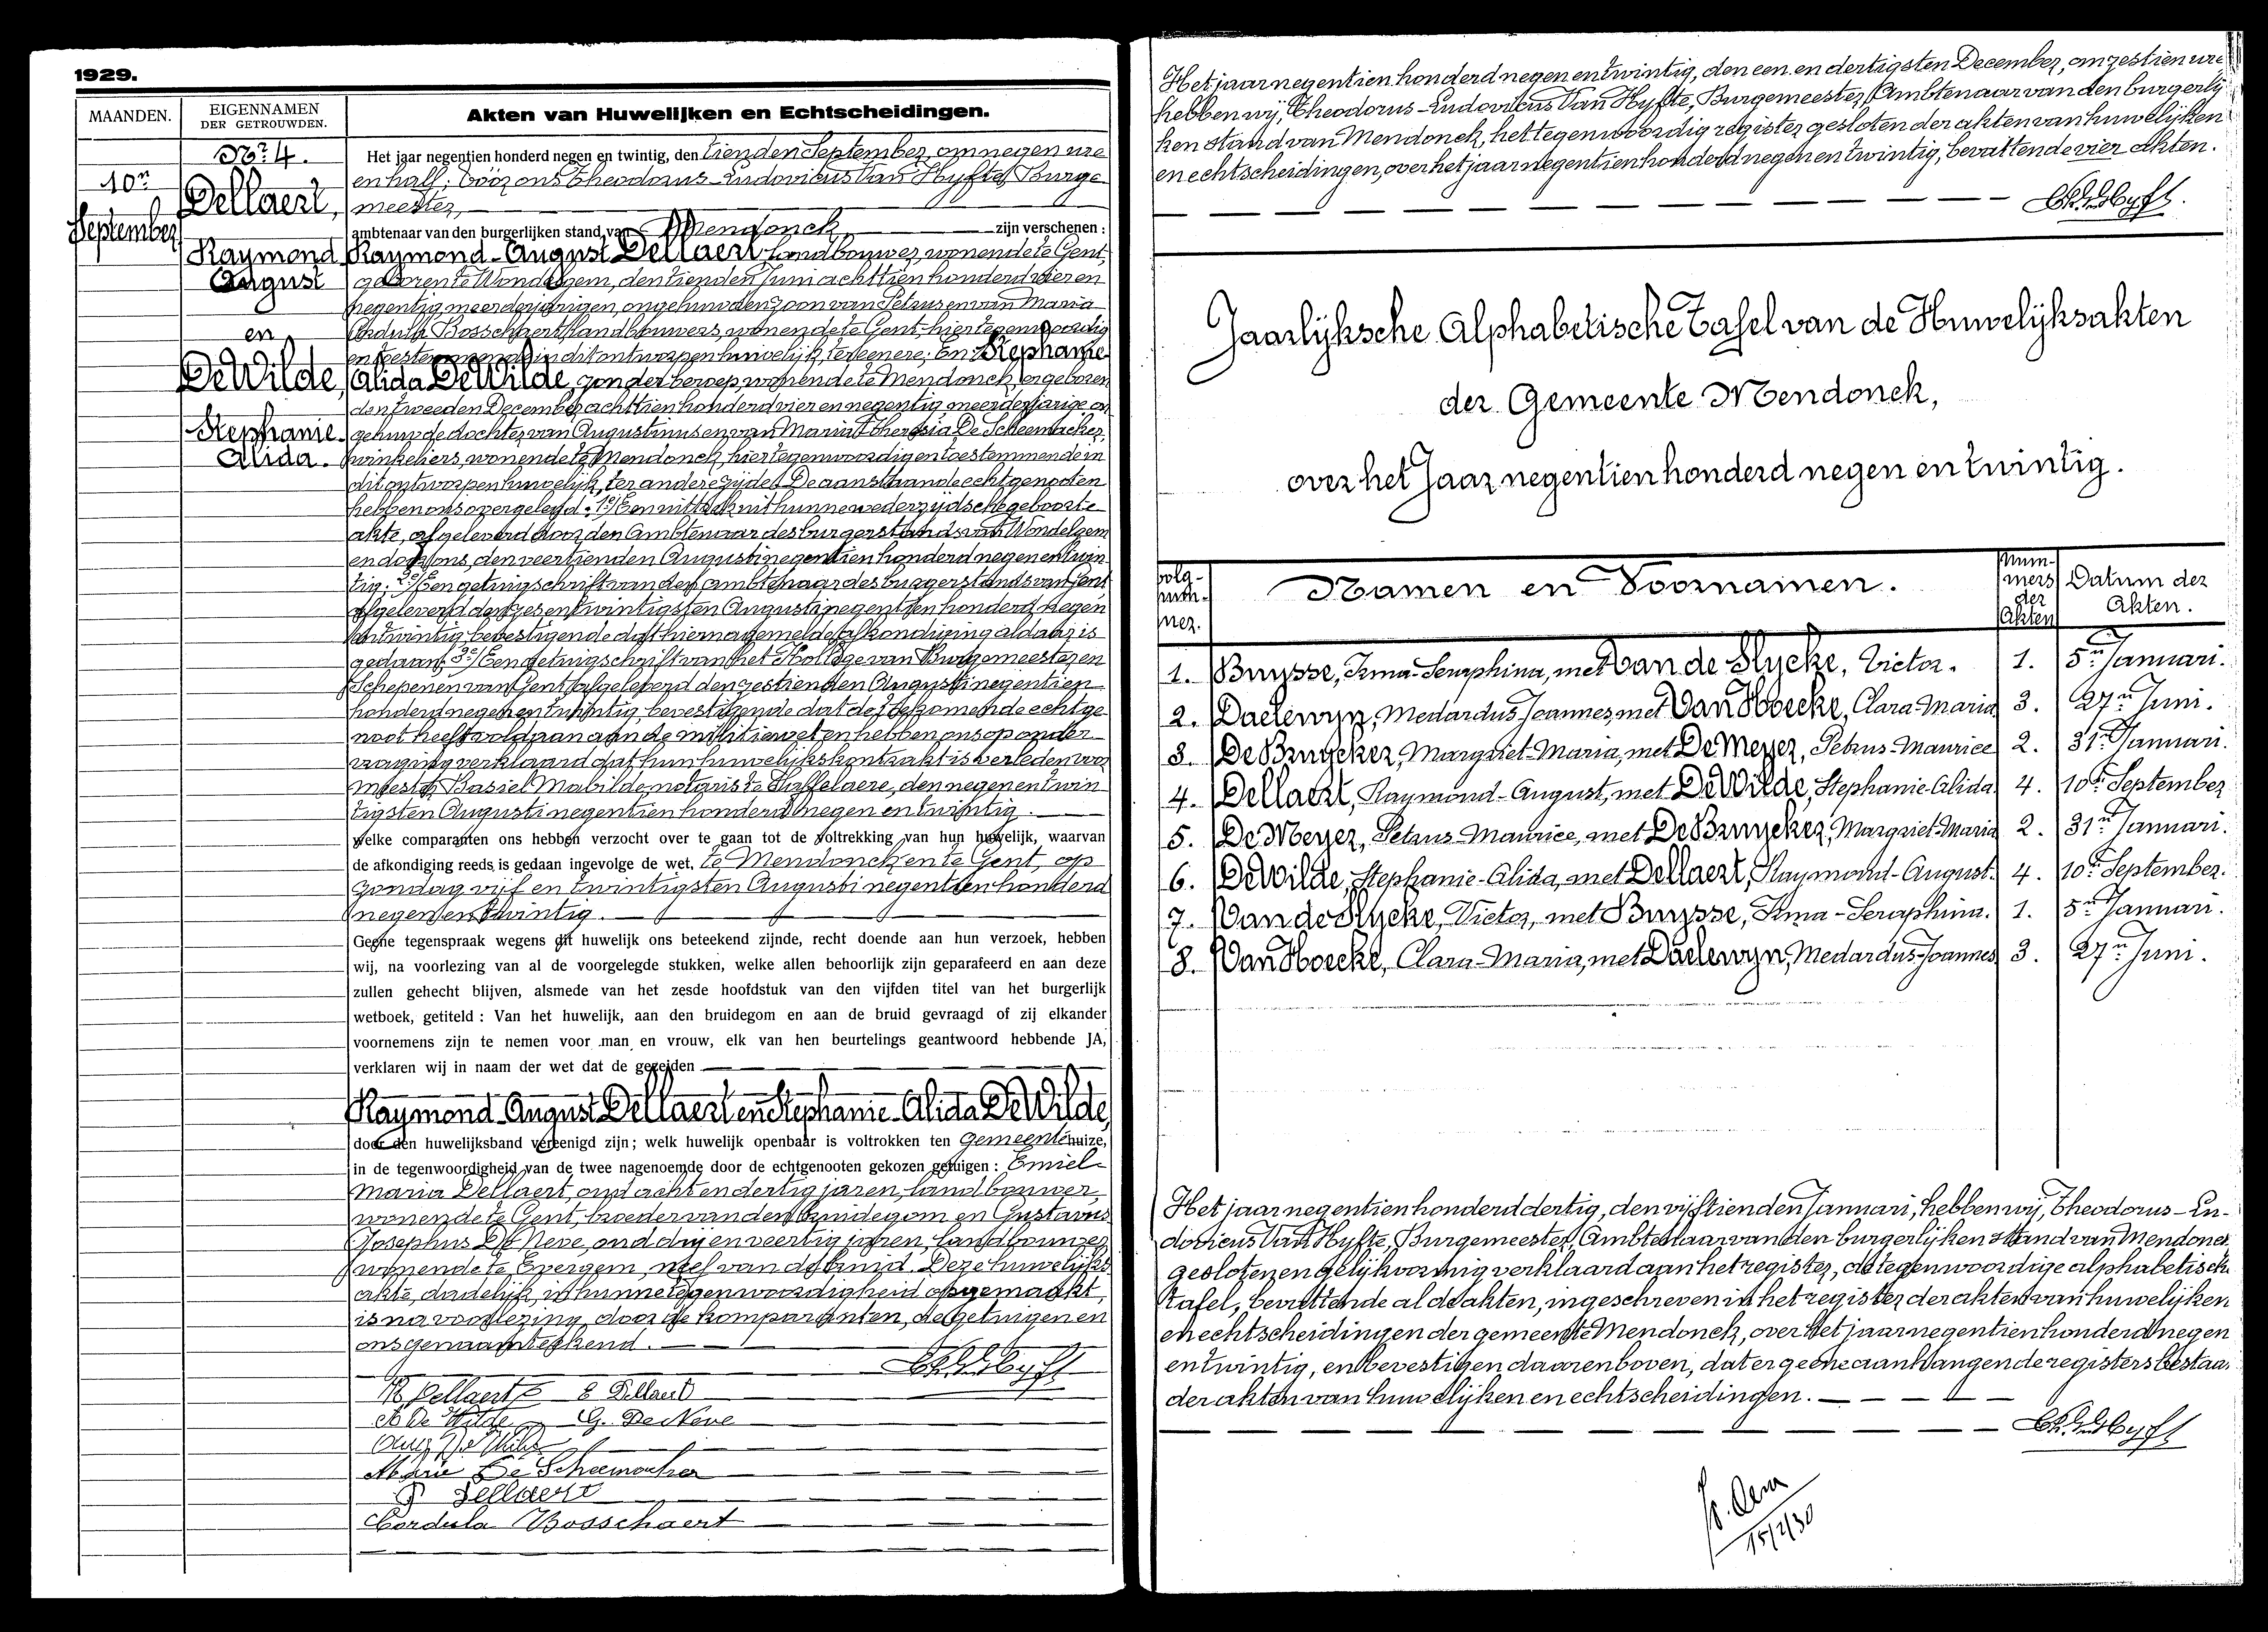 1929.
MAANDEN.
EIGENNAMEN
DER GETROUWDEN.
Akten van Huwelijken en Echtscheidingen.
Nr. 4.
10n
September
Dellaert,
Raymond
August
en
De Wilde,
Stephanie
Alida.
Het jaar negentien honderd negen en twintig, den tienden September, om negen ure
en half, vóór ons Theodorus-Ludovicus Van Hyfte, Burge
meester,
ambtenaar van den burgerlijken stand van Mendonck, zijn verschenen :
Raymond-August Dellaert, landbouwer, wonende te Gent,
geboren te Wondelgem, den tienden Juni achttien honderd vier en
negentig, meerderjarigen, ongehuwden zoon van Petrus en van Maria
Cordula Bosschaert, landbouwers, wonende te Gent, hier tegenwoordig
en toestemmende in dit ontworpen huwelijk, ter eenere; En Stephanie
Alida De Wilde, zonder beroep, wonende te Mendonck, er geboren
den tweeden December achttien honderd vier en negentig, meerderjarige on
gehuwde dochter van Augustinus en van Maria Theresia De Scheemaeker,
winkeliers, wonende te Mendonck, hier tegenwoordig en toestemmende in
dit ontworpen huwelijk, ter andere zijde. De aanstaande echtgenooten
hebben ons overgelegd: 1º/ Een uittrek uit hunne wederzijdsche geboorte
akte, afgeleverd door den Ambtenaar des burgerstands van Wondelgem
en door ons, den veertienden Augusti negentien honderd negen en twin
tig; 2º/ Een getuigschrift van den ambtenaar des burgerstands van Gent
afgeleverd den zes en twintigsten Augusti negentien honderd negen
en twintig, bevestigende dat hiernagemelde afkondiging aldaar is
gedaan; 3º/ Een getuigschrift van het Kollege van Burgemeester en
Schepenen van Gent, afgeleverd den zestienden Augusti negentien
honderd negen en twintig, bevestigende dat de toekomende echtge
noot heeft voldaan aan de militiewet en hebben ons op onder
vraging verklaard dat hun huwelijkskontrakt is verleden voor
Meester Basiel Mabilde, notaris te Zaffelaere, den negen en twin
tigsten Augusti negentien honderd negen en twintig.
Welke comparanten ons hebben verzocht over te gaan tot de voltrekking van hun huwelijk, waarvan
de afkondiging reeds is gedaan ingevolge de wet, te Mendonck en te Gent, op
zondag vijf en twintigsten Augusti negentien honderd
negen en twintig.
Geene tegenspraak wegens dit huwelijk ons beteekend zijnde, recht doende aan hun verzoek, hebben
wij, na voorlezing van al de voorgelegde stukken, welke allen behoorlijk zijn geparafeerd en aan deze
zullen gehecht blijven, alsmede van het zesde hoofdstuk van den vijfden titel van het burgerlijk
wetboek, getiteld : Van het huwelijk, aan den bruidegom en aan de bruid gevraagd of zij elkander
voornemens zijn te nemen voor man en vrouw, elk van hen beurtelings geantwoord hebbende JA,
verklaren wij in naam der wet dat de gezeiden
Raymond August Dellaert en Stephanie Alida De Wilde,
door den huwelijksband vereenigd zijn; welk huwelijk openbaar is voltrokken ten Gemeentehuize,
in de tegenwoordigheid van de twee nagenoemde door de echtgenooten gekozen getuigen : Emiel
Maria Dellaert, oud acht en dertig jaren, landbouwer,
wonende te Gent, broeder van den bruidegom en Gustavus
Josephus De Neve, oud drij en veertig jaren, landbouwer
wonende te Evergem, neef van de bruid. Deze huwelijks
akte, dadelijk in hunne tegenwoordigheid opgemaakt,
is na voorlezing, door de komparanten, de getuigen en
ons genaamteekend.
R. Dellaert E Dellaert
A De Wilde G. De Neve
Aug De Wilde
Marie De Scheemaeker
P Dellaert
Cordula Bosschaert
Het jaar negentien honderd negen en twintig, den een en dertigsten December, om zestien ure
hebben wij, Theodorus-Ludovicus Van Hyfte, Burgemeester, Ambtenaar van den burgerlij
ken stand van Mendonck, het tegenwoordig register gesloten der akten van huwelijken
en echtscheidingen, over het jaar negentien honderd negen en twintig, bevattende vier akten.
Jaarlijksche Alphabetische Tafel van de Huwelijksakten
der Gemeente Mendonck,
over het Jaar negentien honderd negen en twintig.
Volg-
num-
mer.
Namen en Voornamen.
Num-
mers
der
Akten
Datum der
Akten.
1. Buysse, Irma-Seraphina, met Van de Slycke, Victor. 1. 5n Januari.
2. Daelewyn, Medardus Joannes, met Van Hoecke, Clara-Maria 3. 27n Juni.
3. De Bruycker, Margriet-Maria, met De Meyer, Petrus-Maurice 2. 31n Januari.
4. Dellaert, Raymond-August, met De Wilde, Stephanie-Alida 4. 10n September
5. De Meyer, Petrus-Maurice, met De Bruycker, Margriet-Maria 2. 31n Januari.
6. De Wilde, Stephanie-Alida, met Dellaert, Raymond-August. 4. 10n September.
7. Van de Slycke, Victor, met Buysse, Irma-Seraphina. 1. 5n Januari.
8. Van Hoecke, Clara-Maria, met Daelewyn, Medardus-Joannes 3. 27n Juni.
Het jaar negentien honderd dertig, den vijftienden Januari, hebben wij, Theodorus-Lu-
dovicus Van Hyfte, Burgemeester, Ambtenaar van den burgerlijken stand van Mendonck
gesloten en gelijkvormig verklaard aan het register, de tegenwoordige alphabetisch
tafel, bevattende al de akten, ingeschreven in het register der akten van huwelijken
en echtscheidingen der gemeente Mendonck, over het jaar negentien honderd negen
en twintig, en bevestigen daarenboven, dat er geene aanhangende registers bestaan
der akten van huwelijken en echtscheidingen.
15/2/30